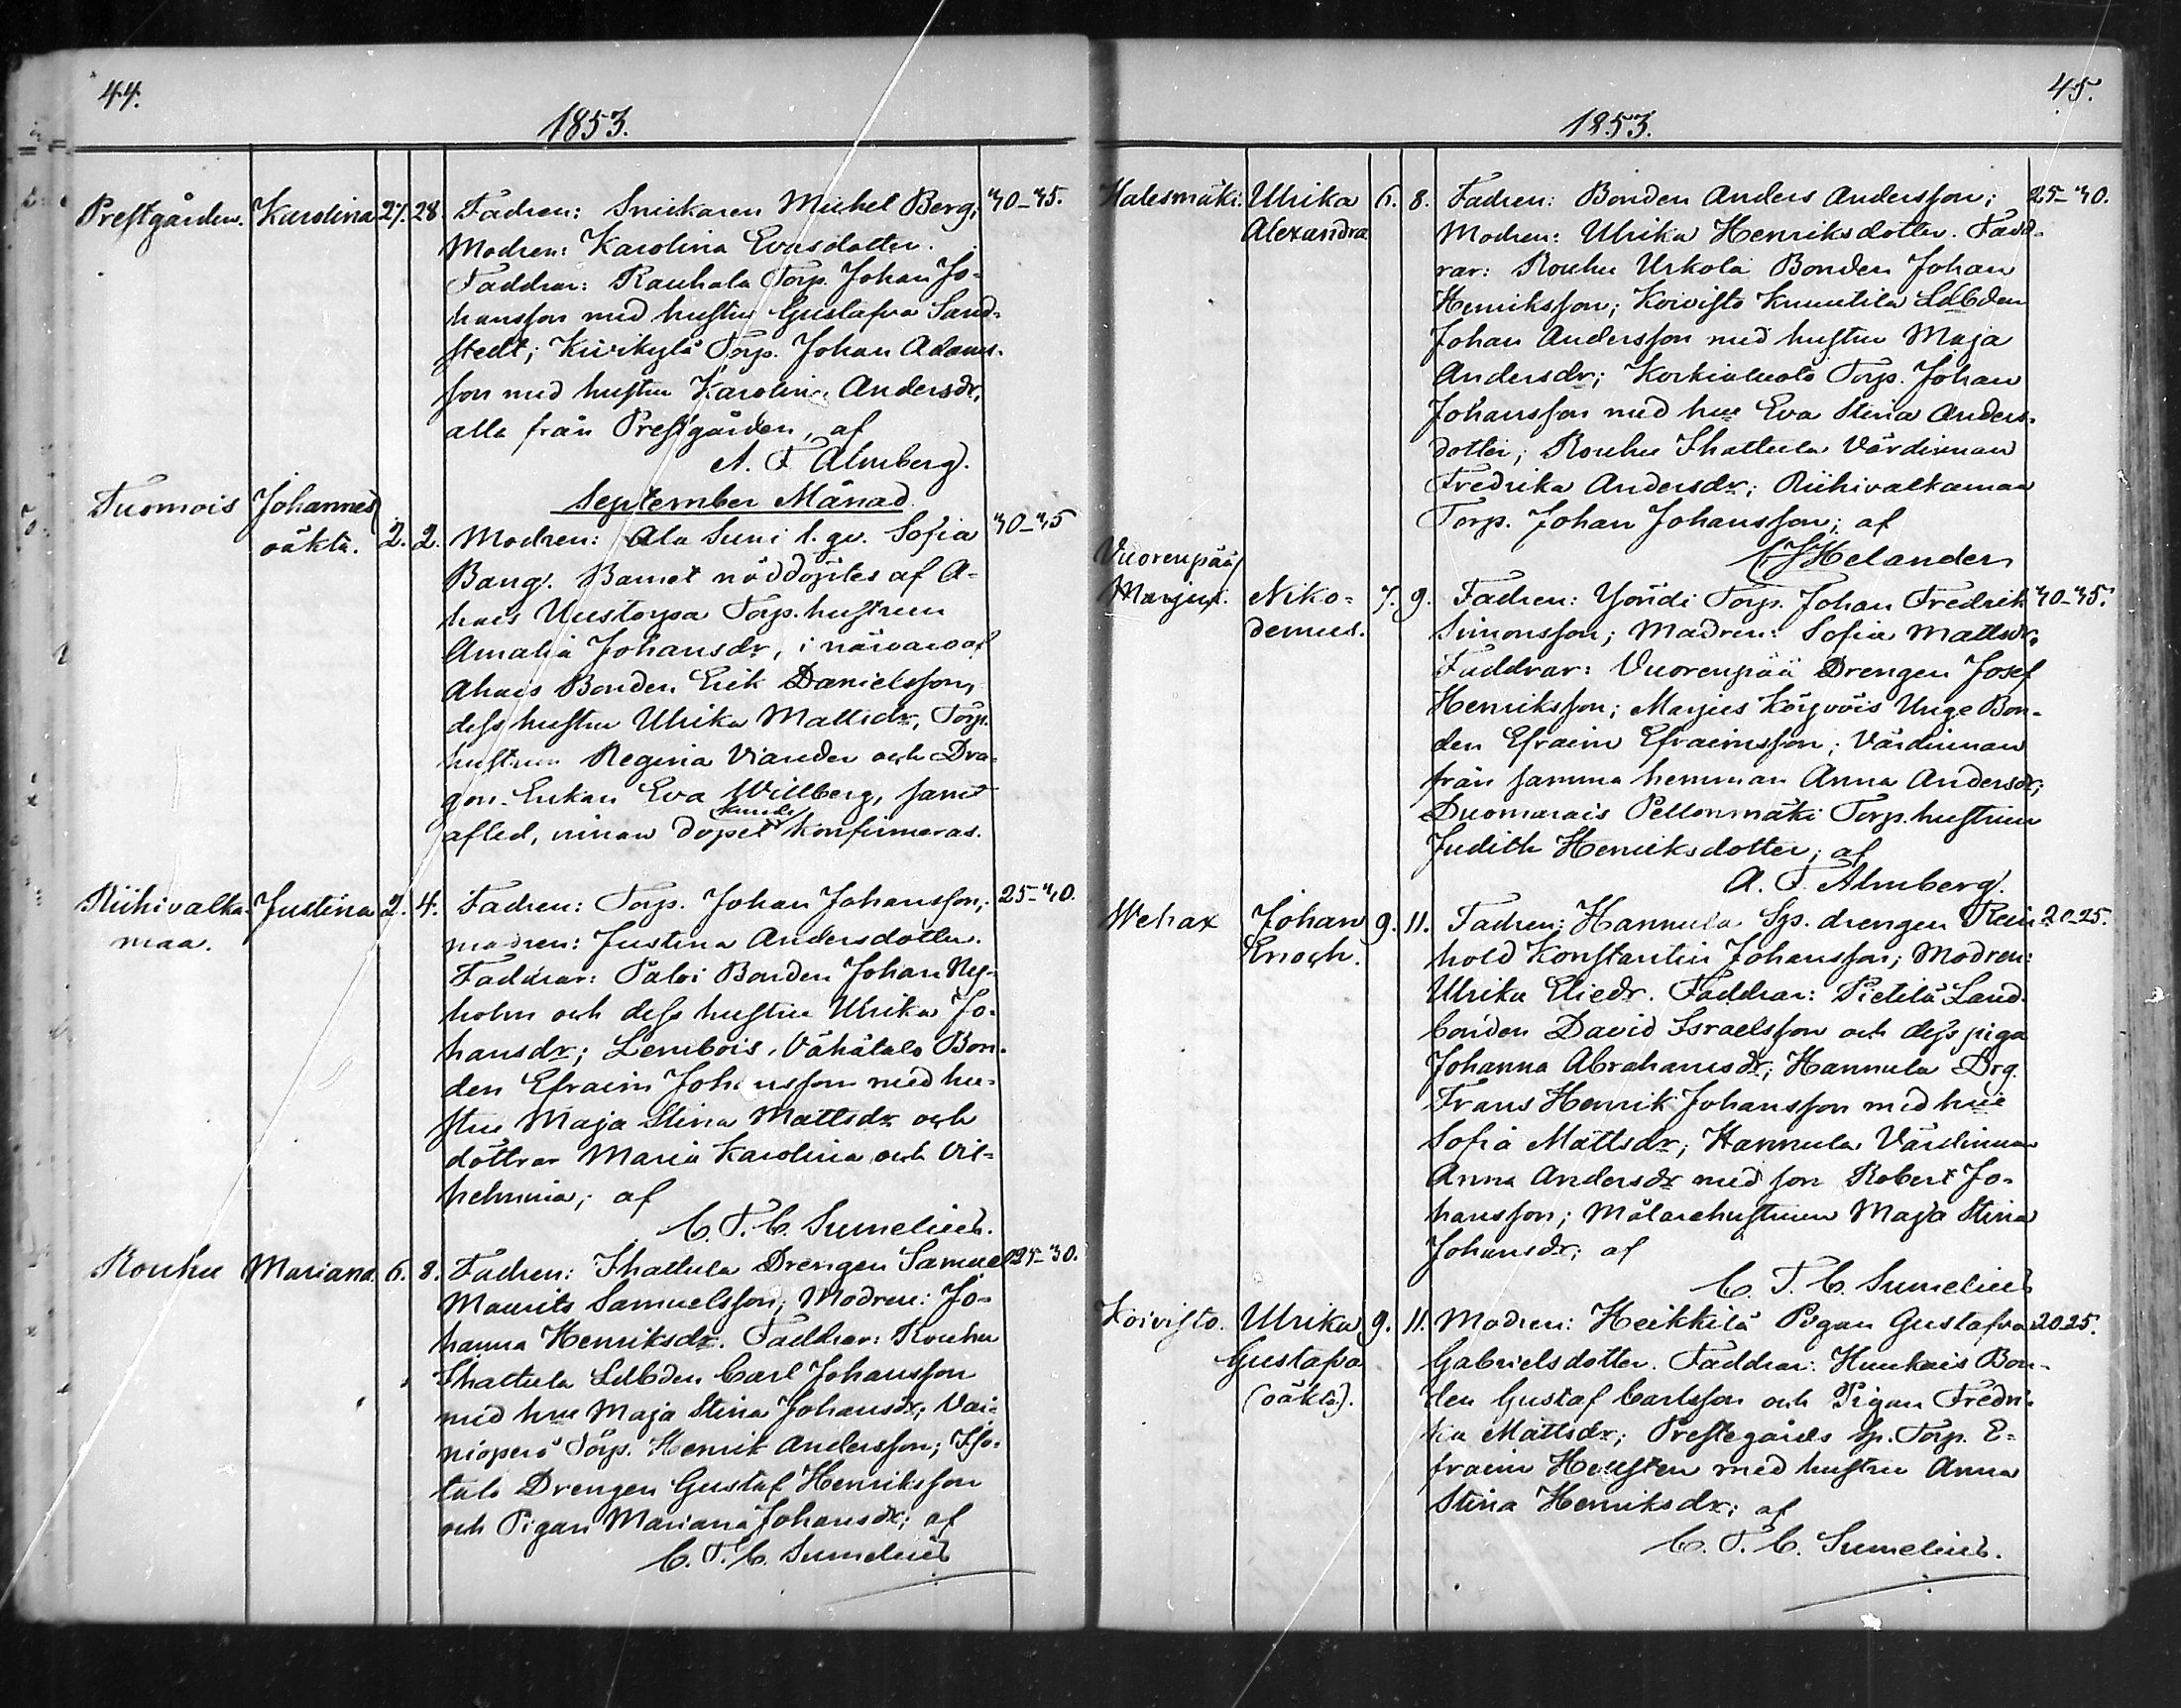 44.
1853.
Prestgården. Karolina 27. 28. Fadren: Snickaren Michel Berg; 40-45.
Modren: Karolina Evasdotter.
Faddrar: Rauhala Torp. Johan Jo-
hansson med hustru Gustafva Sand-
stedt; Kivikylä Torp. Johan Adams-
son med hustru Karolina Andersdr,
alla från Prestgården, af
A. F. Almberg.
September Månad.
Tuomois Johannes
oäkta. 2. 2. Modren: Ala Suni l. qv. Sofia 40-45
Bang. Barnet nöddöptes af A-
hais Uustorpa Torp. hustrun
Amalia Johansdr, i närvaro af
Ahais Bonden Erik Danielsson,
dess hustru Ulrika Mattsdr, Torp.
hustrun Regina Viander och Dra-
gon-Enkan Eva Willberg, samt
afled, innan dopet kunde konfirmeras.
Riihivalka- Justina 2. 4. Fadren: Torp. Johan Johansson; 25-40.
maa. modren: Justina Andersdotter.
Faddrar: Päloi Bonden Johan Ny-
holm och dess hustru Ulrika Jo-
hansdr; Lembois, Vähätalo Bon-
den Efraim Johansson med hu-
stru Maja Stina Mattsdr och
döttrar Maria Karolina och Vil-
helmina; af
C. T. C. Sumelius.
Rouhu Mariana. 6. 8. Fadren: Thattula Drengen Samuel 25-30.
Maurits Samuelsson; Modren: Jo-
hanna Henriksdr. Faddrar: Rouhu
Thattula Ldbden Carl Johansson
med hru Maja Stina Johansdr; Vai-
nioperä Torp. Henrik Andersson; Iso-
talo Drengen Gustaf Henriksson
och Pigan Mariana Johansdr; af
C. T. C. Sumelius
45.
1853.
Halesmäki. Ulrika 6. 8. Fadren: Bonden Anders Andersson; 25-40.
Alexandra Modren: Ulrika Henriksdotter. Fadd-
rar: Rouhu Urkola Bonden Johan
Henriksson; Koivisto Knuutila Ldbden
Johan Andersson med hustru Maja
Andersdr; Korkialuoto Torp. Johan
Johansson med hru Eva Stina Anders-
dotter; Rouhu Thattula Värdinnan
Fredrika Andersdr; Riihivalkamaa
Torp. Johan Johansson; af
Helander
Vuorenpää
Marjus. Niko- 7. 9. Fadren: Yöndi Torp. Johan Fredrik 40-45.
demus. Simonsson; Modren: Sofia Mattsdr.
Faddrar: Vuorenpää Drengen Josef
Henriksson; Marjus Körpöis Unge Bon-
den Efraim Efraimsson; Värdinnan
från samma hemman Anna Andersdr;
Duomarais Pellonmäki Torp. hustrun
Judith Henriksdotter; af
A. F. Almberg.
Wehax Johan 9. 11. Fadren: Hannula Sp. drengen Rein- 20-25.
Enoch. hold Konstantin Johansson; Modren:
Ulrika Eliedr. Faddrar: Pietilä Land-
bonden David Israelsson och dess piga
Johanna Abrahamsdr; Hannula Drg.
Frans Henrik Johansson med hru
Sofia Mattsdr; Hannula Värdinnan
Anna Andersdr med son Robert Jo-
hansson; Målarehustrun Maja Stina
Johansdr; af
C. T. C. Sumelius
Koivisto. Ulrika 9. 11. Modren: Heikkilä Pigan Gustafva 20-25.
Gustafva Gabrielsdotter. Faddrar: Huukais Bon-
(oäkta). den Gustaf Carlsson och Pigan Fredri-
ka Mattsdr; Prestegårds sp. Torp. E-
fraim Heusten med hustru Anna
Stina Henriksdr; af
C. T. C. Sumelius.